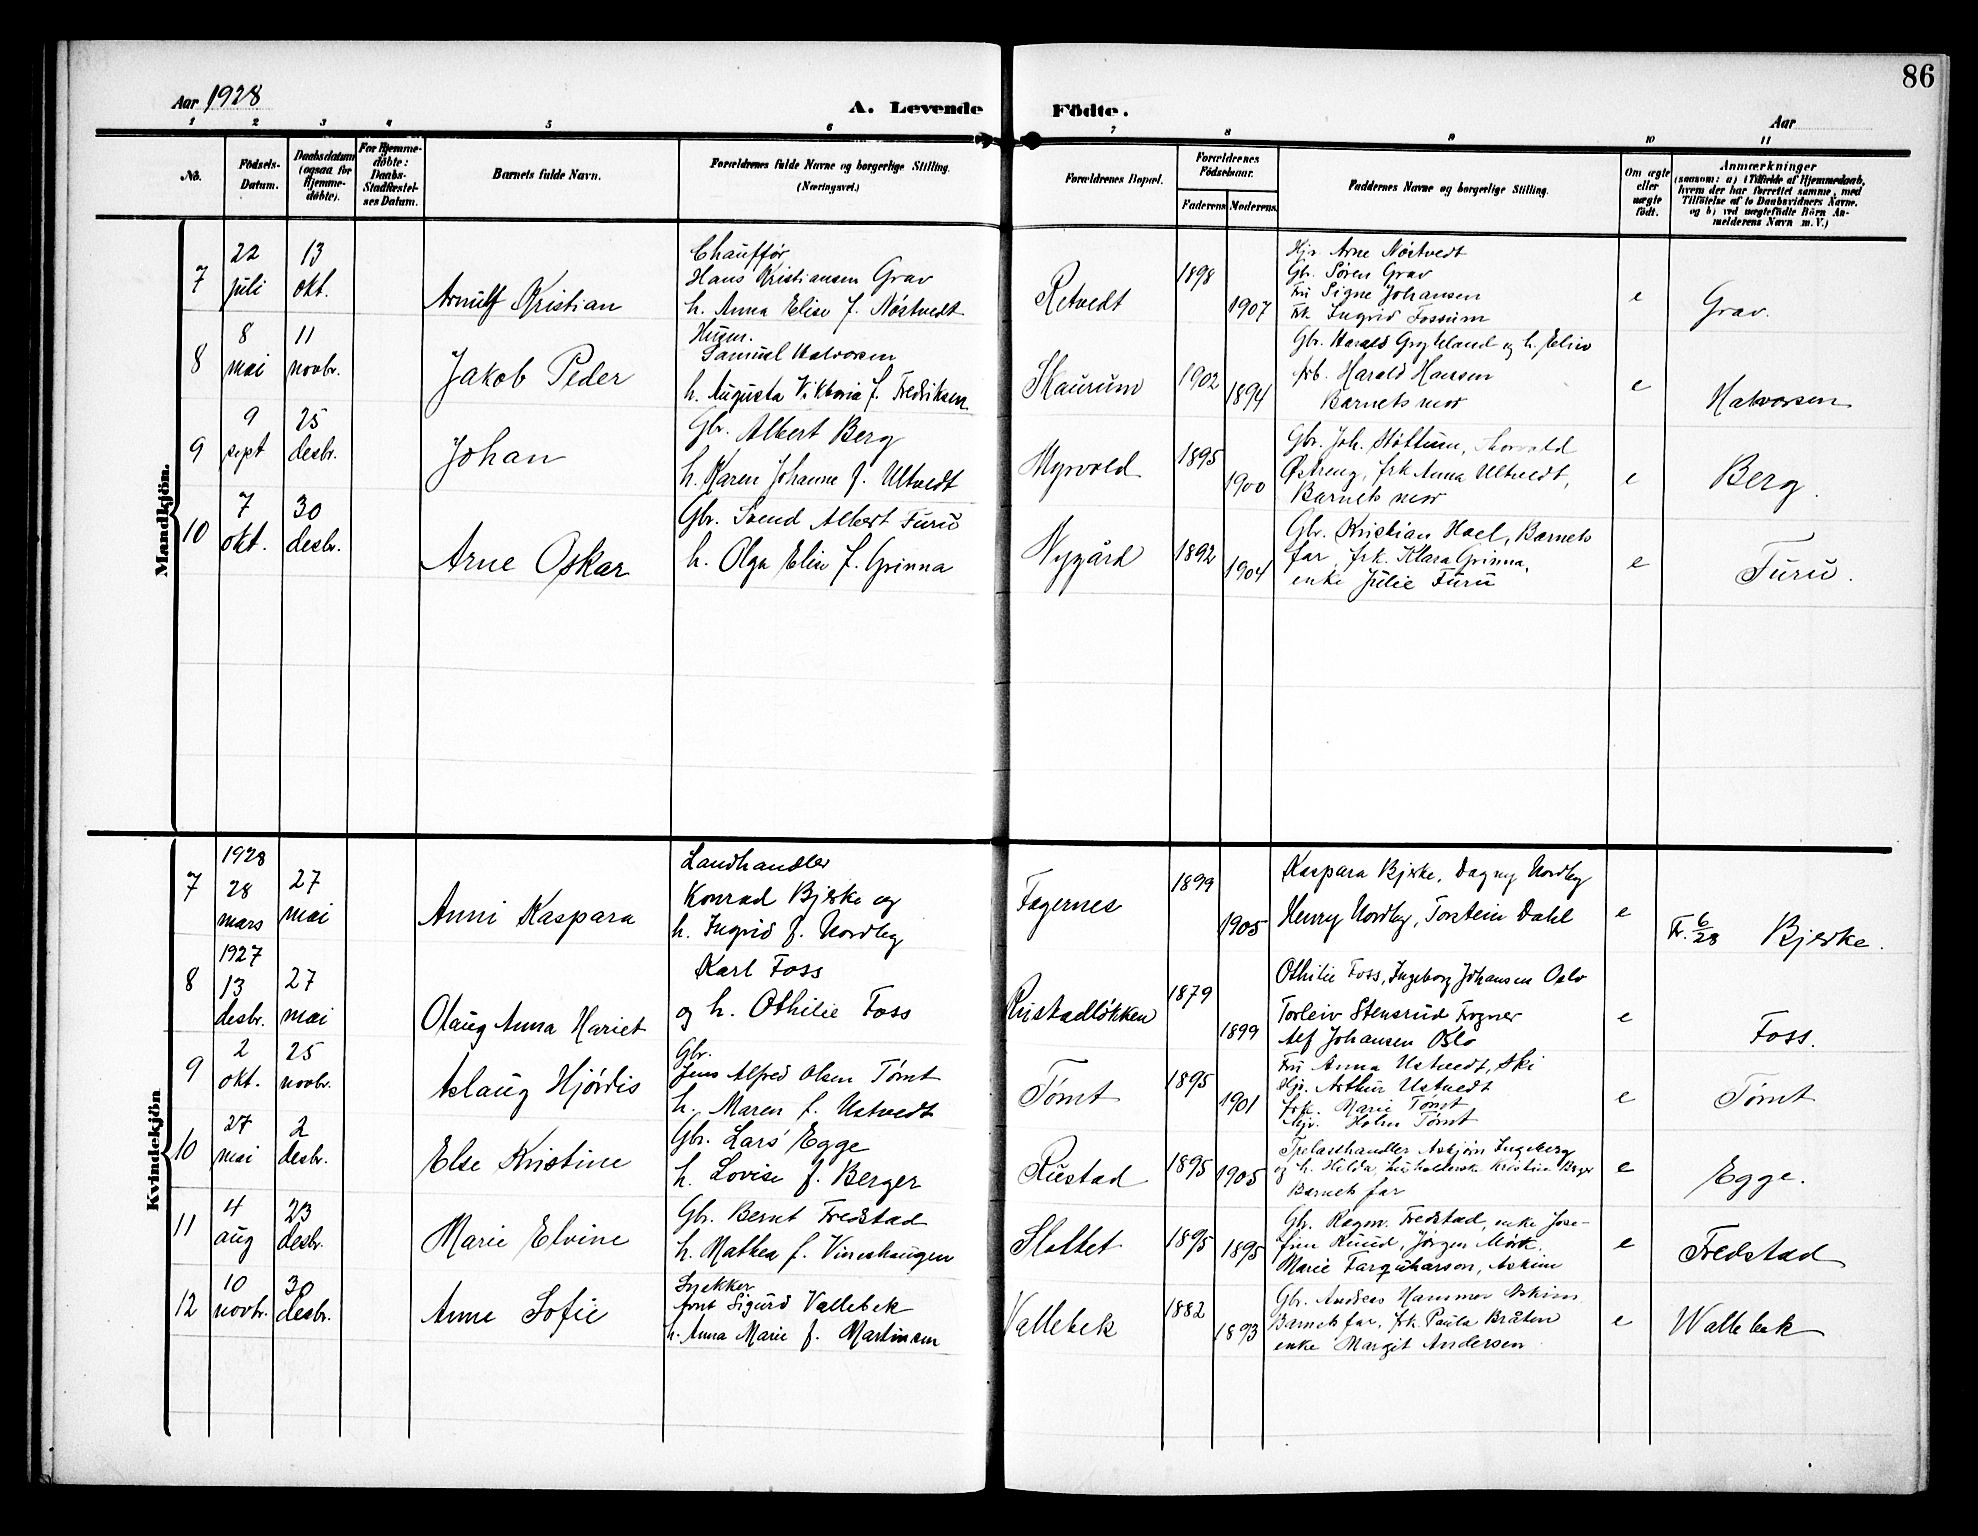 86
Aar 1928
A. Levende Födte.
Aar
1 2 3 4 5 6 7 8 9 10 11
No.
Födsels-
Datum.
Daabsdatum
(ogsaa for
Hjemme-
döbte).
For Hjemme-
döbte:
Daabs-
Stadfæstel-
ses Datum.
Barnets fulde Navn.
Forældrenes fulde Navne og borgerlige Stilling.
(Næringsvei.)
Forældrenes Bopæl.
Forældrenes
Födselsaar.
Faderens Moderens
Faddernes Navne og borgerlige Stilling.
Om ægte
eller
uægte
født.
Anmærkninger
(saasom: a) i Tilfælde af Hjemmedaab,
hvem der har forrettet samme, med
Tilföielse af to Daabsvidners Navne,
og b) ved uægtefödte Börn An-
melderens Navn m. V.)
Mandkjön.
7
22
juli
13
okt.
Arnulf Kristian
Chauffør
Hans Kristiansen Grav
h. Anna Elise f. Nöstvedt
Retvedt
1898
1907
Hjr. Arne Nöstvedt
Gbr. Søren Grav
Fru Signe Johansen
Frk. Ingrid Fossum
e
Grav.
8
8
mai
11
novbr.
Jakob Peder
Husm.
Samuel Halvorsen
h. Augusta Viktoria f. Fredriksen
Skaurum
1902
1894
Gbr. Harald Gryteland og h. Elise
Arb. Harald Hansen
Barnets mor
e
Halvorsen
9
9
sept
25
desbr.
Johan
Gbr. Albert Berg
h. Karen Johanne f. Ultvedt
Myrvold
1895
1900
Gbr. Joh. Støttum, Thorvald
Østreng, frk Anna Ultvedt,
Barnets mor
e
Berg.
10
7
okt.
30
desbr.
Arne Oskar
Gbr. Svend Albert Furu
h. Olga Elise f. Grinna
Nygård
1892
1904
Gbr. Kristian Hoel, Barnets
far, frk. Klara Grinna,
enke Julie Furu
e
Furu.
Kvindekjön
7
1928
28
mars
27
mai
Anni Kaspara
Landhandler
Konrad Bjerke og
h. Ingrid f. Nordby
Fagernes
1899
1905
Kaspara Bjerke, Dagny Nordby
Henry Nordby, Torstein Dahl
e
Fr. 6/28 Bjerke.
8
1927
13
desbr.
27
mai
Olaug Anna Hariet
Karl Foss
og h. Othilie Foss
Rustadløkken
1879
1899
Othilie Foss, Ingeborg Johansen Oslo
Torleiv Stensrud Frogner
Alf Johansen Oslo
e
Foss.
9
2
okt.
25
novbr.
Aslaug Hjördis
Gbr.
Jens Alfred Olsen Tømt
h. Maren f. Ustvedt
Tømt
1895
1901
Fru Anna Ustvedt, Ski
Hjr. Arthur Ustvedt
Frk. Marie Tømt
Hjr. Holm Tømt
e
Tømt
10
27
mai
2
desbr.
Else Kristine
Gbr. Lars Egge
h. Lovise f. Berger
Rustad
1895
1905
Trelasthandler Asbjørn Ingeberg
og h. Hilda, Kristine Berger
Barnets far
e
Egge.
11
4
aug
23
desbr.
Marie Elvine
Gbr. Bernt Fredstad
h. Mathea f. Vineshaugen
Slottet
1895
1895
Gbr. Ragnv. Fredstad, enke Jose-
fine Ruud, Jörgen Mörk.
Marie Farquharson, Askim
e
Fredstad
12
10
novbr.
30
desbr.
Anne Sofie
Snekker
Arnt Sigurd Vallebek
h. Anna Marie f. Martinsen
Vallebek
1882
1893
Gbr. Andreas Hammer Askim
Barnets far, frk. Paula Bråten
enke Margit Andersen
e
Wallebek